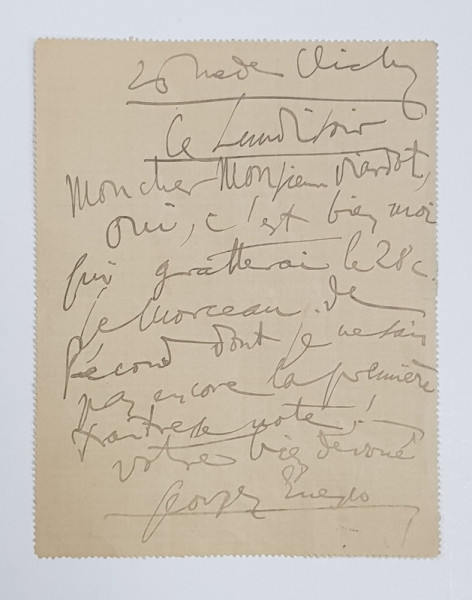 26 rue de Clichy
Ce Lundi soir
Mon cher Monsieur Viardot,
oui, c'est bien moi
qui gratterai le 28 c.
le morceau de
Pécoud dont je ne sais
pas encore la première
traîtresse note!
votre bien dévoué
Georges Enesco